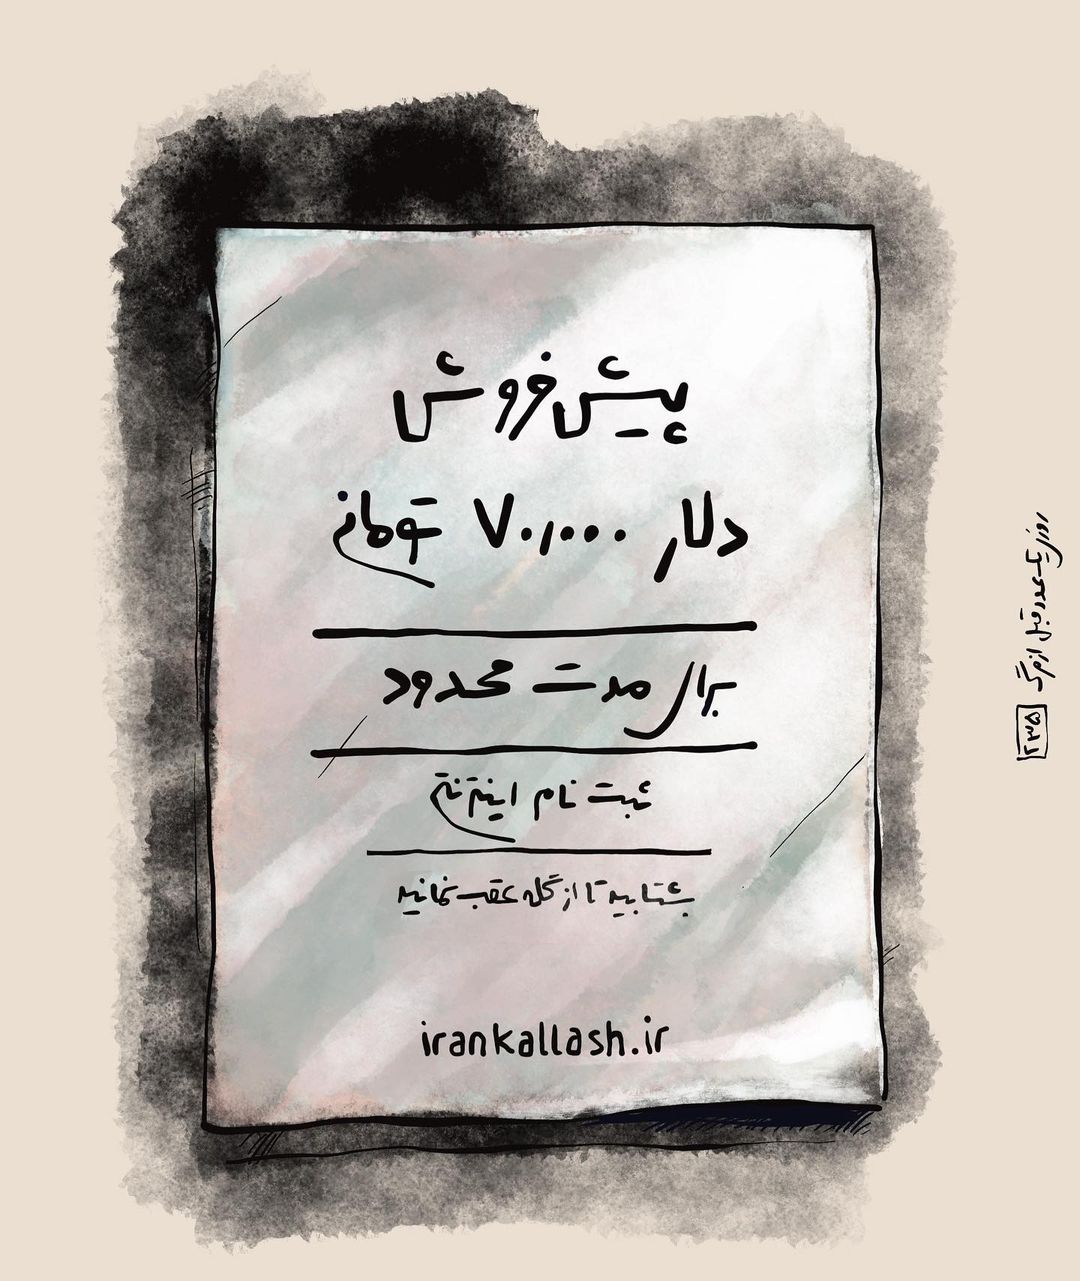 پیش‌فروش
دلار ۷۰،۰۰۰ تومانی
برای مدت محدود
ثبت نام اینترنتی
بشتابید تا از گله عقب نمانید
irankallash.ir
روز یک عدد قبل از مرگ
۲۳۵